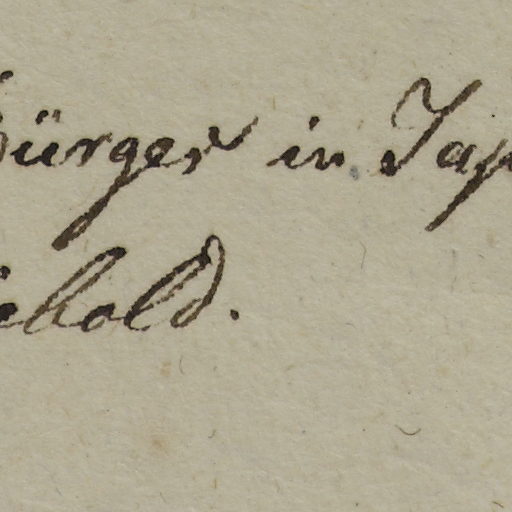 Bürger in Jap
iebold.